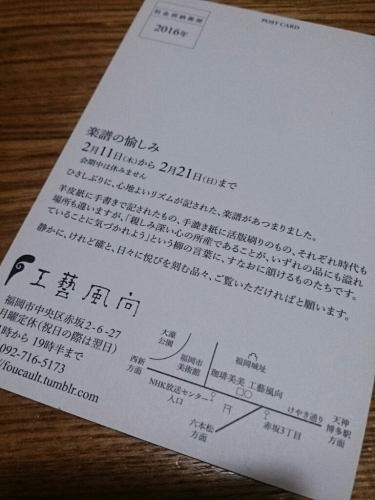 POST CARD
料金別納郵便
2016年
楽譜の愉しみ
2月11日(木)から 2月21日(日)まで
会期中は休みません
ひさしぶりに、心地よいリズムが記された、楽譜があつまりました。
羊皮紙に手書きで記されたもの、手漉き紙に活版刷りのもの、それぞれ時代も
場所も違いますが、「親しみ深い心の所産であることが、いずれの品にも溢れ
ていることに気づかれよう」という柳の言葉に、すなおに頷けるものたちです。
静かに、けれど確と、日々に悦びを刻む品々、ご覧いただければと願います。
工藝風向
福岡市中央区赤坂2-6-27
月曜定休(祝日の際は翌日)
時から 19時半まで
092-716-5173
/foucault.tumblr.com
大濠
公園
西新
方面
福岡市
美術館
福岡城址
珈琲美美 工藝風向
NHK放送センター
入口
けやき通り
天神
博多駅
方面
赤坂3丁目
六本松
方面